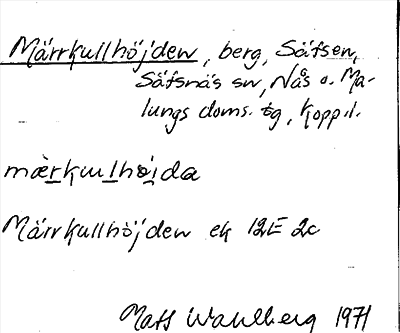 Märrkullhöjden, berg, Säfsen,
Säfsnäs sn, Nås o. Ma-
lungs doms. tg, Kopp.l.
mærkulhöjda
Märrkullhöjden ek 12E 2c
Mats Wahlberg 1971